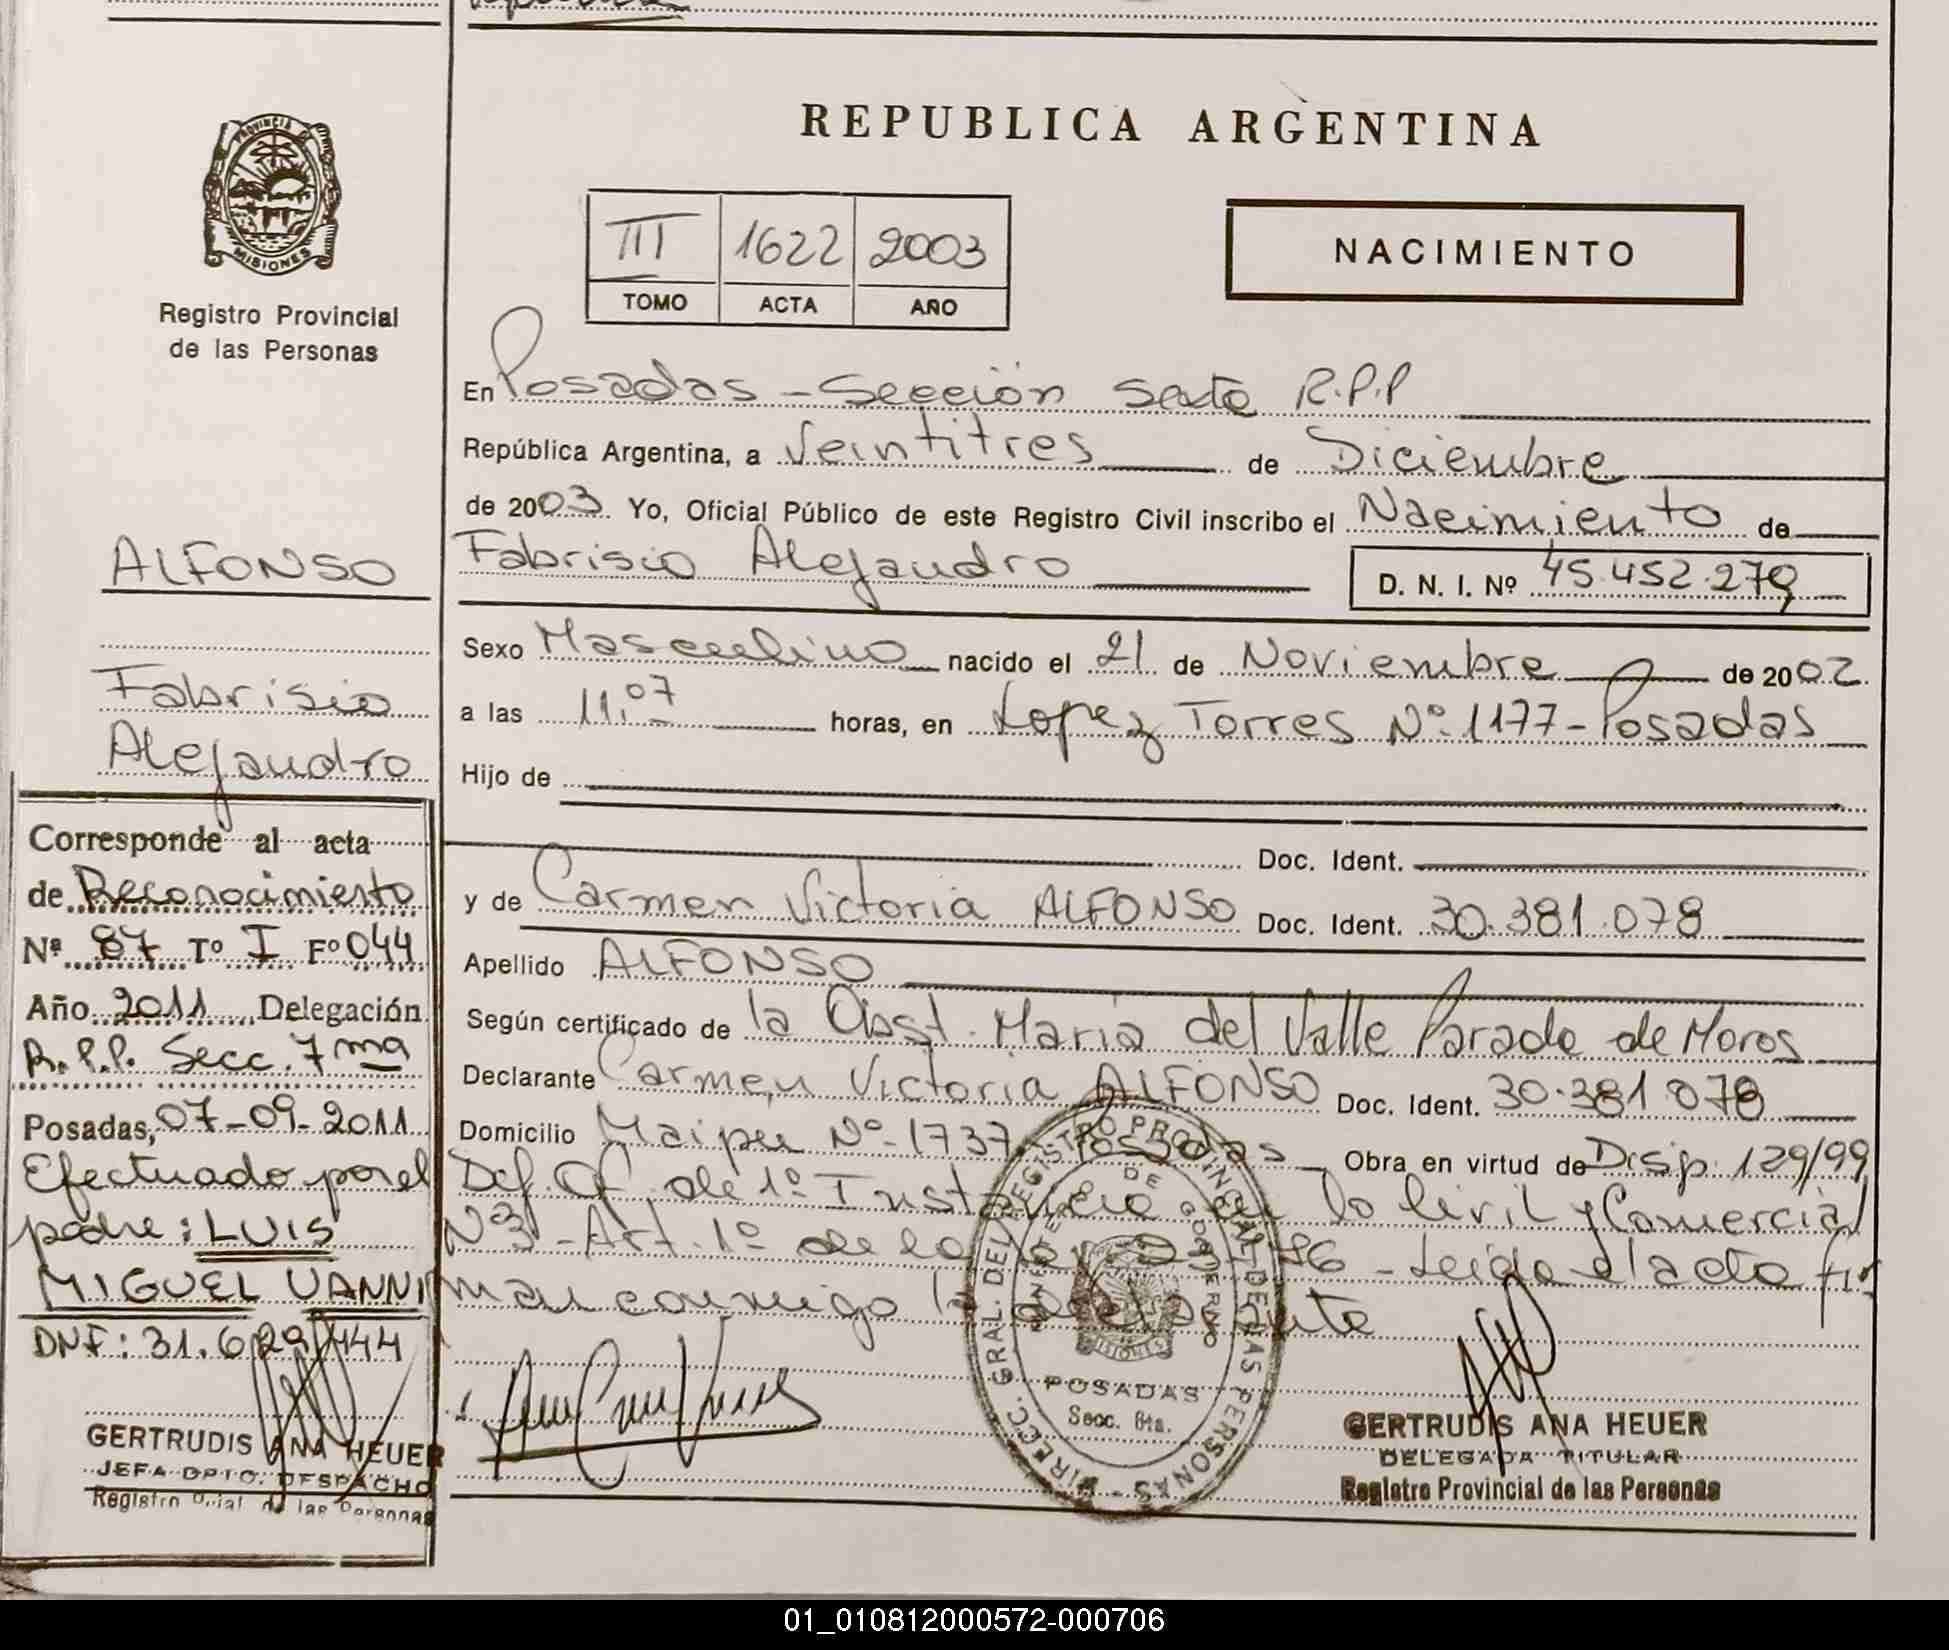 REPUBLICA ARGENTINA
PROVINCIA DE
MISIONES
Registro Provincial
de las Personas
III 1622 2003
TOMO ACTA AÑO
NACIMIENTO
En Posadas - Sección Sexta R.P.P
República Argentina, a Veintitres de Diciembre
de 2003 Yo, Oficial Público de este Registro Civil inscribo el Nacimiento de
Fabrisio Alejandro D. N. I. Nº 45.452.279
Sexo Masculino nacido el 21 de Noviembre de 2002
a las 11,07 horas, en Lopez Torres Nº 1177 - Posadas
Hijo de
Doc. Ident.
y de Carmen Victoria ALFONSO Doc. Ident. 30.381.078
Apellido ALFONSO
Según certificado de la Obst. Maria del Valle Parada de Moros
Declarante Carmen Victoria ALFONSO Doc. Ident. 30.381.078
Domicilio Maipu Nº 1737 Posadas Obra en virtud de Disp. 129/99
Def. Of. de 1º Instancia en lo Civil y Comercial
Nº3 - Art. 1º de la Ley - Leida el acta fir
man conmigo la declarante
DIRECC. GRAL. DEL REGISTRO PROVINCIAL DE LAS PERSONAS
MINISTERIO DE GOBIERNO
MISIONES
POSADAS
Secc. 6ta.
GERTRUDIS ANA HEUER
DELEGADA TITULAR
Registro Provincial de las Personas
ALFONSO
Fabrisio
Alejandro
Corresponde al acta
de Reconocimiento
Nº 87 Tº I Fº 044
Año 2011 Delegación
R.P.P. Secc. 7ma
Posadas, 07-09-2011
Efectuado por el
padre: LUIS
MIGUEL VANNI
DNI: 31.629.444
GERTRUDIS ANA HEUER
JEFA DPTO. DESPACHO
Registro Pcial de las Personas
01_010812000572-000706